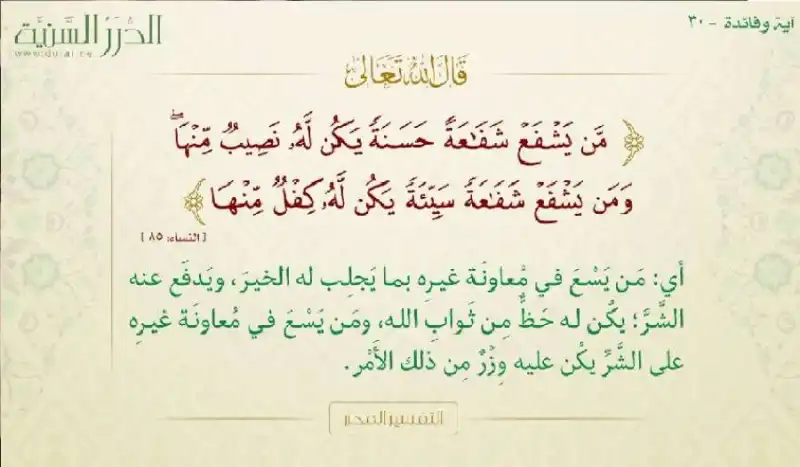 آية وفائدة - ٣٠
الدُّرَرُ السَّنِيَّة
قَالَ اللهُ تَعَالَى
﴿ مَّن يَشْفَعْ شَفَٰعَةً حَسَنَةً يَكُن لَّهُۥ نَصِيبٌ مِّنْهَا ۖ
وَمَن يَشْفَعْ شَفَٰعَةً سَيِّئَةً يَكُن لَّهُۥ كِفْلٌ مِّنْهَا ﴾
[ النساء: ٨٥ ]
أي: مَن يَسْعَ في مُعاونَة غيرِه بما يَجلِب له الخيرَ، ويَدفَع عنه
الشَّرَّ؛ يكُن له حَظٌّ مِن ثَوابِ الله، ومَن يَسْعَ في مُعاونَة غيرِه
على الشَّرِّ يكُن عليه وِزْرٌ مِن ذلك الأَمْر.
التفسير المحرر